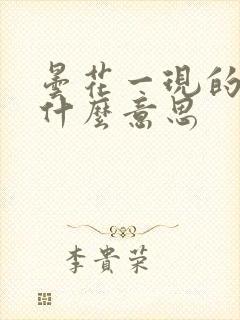 曇花一現的
什麼意思
李貴荣